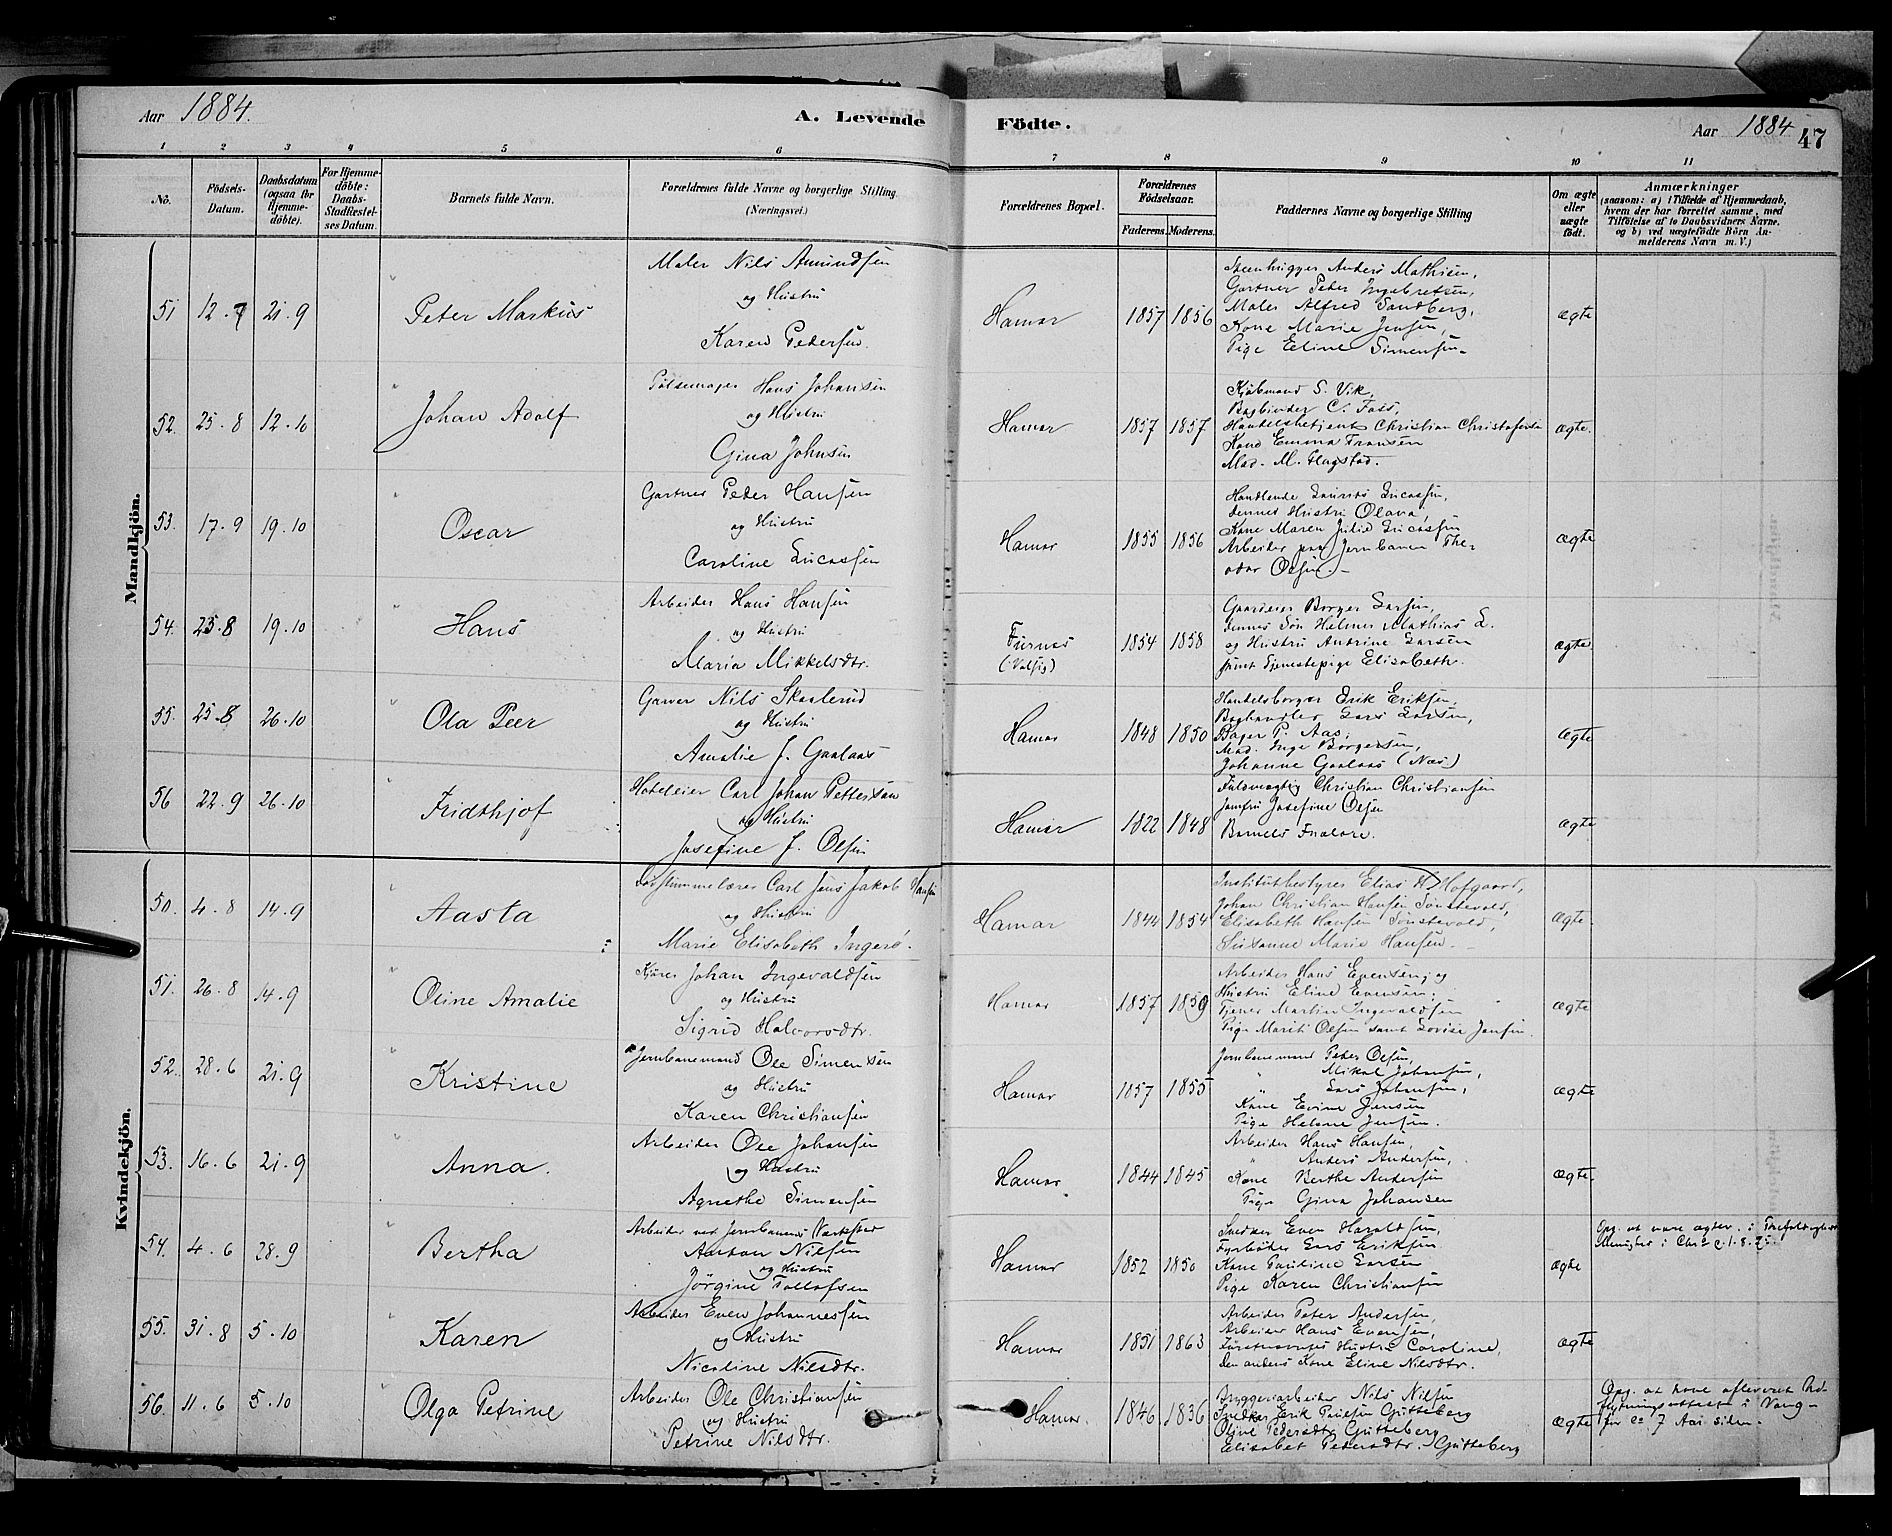 Aar 1884.
A. Levende Födte.
Aar 1884
47
1 2 3 4 5 6 7 8 9 10 11
No.
Födsels-Datum.
Daabsdatum (ogsaa for Hjemmedöbte).
For Hjemmedöbte: Daabs-Stadfæstelses Datum.
Barnets fulde Navn.
Forældrenes fulde Navne og borgerlige Stilling.
(Næringsvei.)
Forældrenes Bopæl.
Forældrenes Födselsaar.
Faderens. Moderens.
Faddernes Navne og borgerlige Stilling
Om ægte eller uægte födt.
Anmærkninger
(saasom: a) i Tilfælde af Hjemmedaab,
hvem der har forrettet samme, med
Tilföielse af to Daabsvidners Navne,
og b) ved uægtefödte Börn An-
melderens Navn m. V.)
Mandkjön.
51 12.7 21.9 Peter Markus
Maler Nils Amundsen
og Hustru
Karen Pedersen.
Hamar 1857 1856
Steenhugger Anders Mathisen,
Gartner Peder Ingebretsen,
Maler Alfred Sandberg,
Kone Marie Jensen,
Pige Eline Simensen.
ægte
52. 25.8 12.10 Johan Adolf
Pölsemager Hans Johansen
og Hustru
Gina Johnsen
Hamar 1857 1857
Kjöbmand S. Vik,
Bogbinder C. Foss,
Handelsbetjent Christian Christofersen
Kone Emma Fransen
Mad. M. Flagstad.
ægte.
53. 17.9 19.10 Oscar
Gartner Peder Hansen
og Hustru
Caroline Lucassen
Hamar 1855 1856
Handlende Laurits Lucassen,
dennes Hustru Olava,
Kone Maren Julie Lucassen
Arbeider paa Jernbanen The-
odor Olsen.
ægte
54. 25.8 19.10 Hans
Arbeider Hans Hansen
og Hustru
Maria Mikkelsdtr.
Furnes 1854 1858
Gaardeier Borger Larsen,
dennes Sön Helmer Mathias L.
og Hustru Antrine Larsen
samt Tjenestepige Elisabeth.
ægte
55. 25.8 26.10 Ola Peer
Garver Nils Skaslerud
og Hustru
Amalie J. Gaalaas
Hamar 1848 1850
Handelsborger Erik Eriksen,
Boghandler Lars Larsen,
Bager P. Aas,
Mad. Inge Borgersen,
Johanne Gaalaas (Næs)
Ægte
56 22.9 26.10 Fridthjof
Hoteleier Carl Johan Pettersson
og Hustru
Josefine J. Olsen
Hamar 1822 1848
Fuldmægtig Christian Christiansen
Jomfru Josefine Olsen
Barnets Forældre.
ægte
Kvindekjön.
50. 4.8 14.9 Aasta
Dövstummelærer Carl Jens Jakob Hansen
og Hustru
Marie Elisabeth Ingerö.
Hamar 1844 1854
Institutbestyrer Elias H. Hofgaard,
Johan Christian Hansen Tönstevold,
Elisabeth Hansen Tönstevold,
Susanne Marie Hansen.
ægte.
51. 26.8 14.9 Oline Amalie
Kjörer Johan Ingevaldsen
og Hustru
Sigrid Halvorsdtr.
Hamar 1857 1859
Arbeider Hans Evensen, og
Hustru Eline Evensen;
Tjener Martin Ingevaldsen
Pige Mariti Olsen samt Lovise Jensen.
ægte
52. 28.6 21.9 Kristine
Jernbanemand Ole Simensen
og Hustru
Karen Christiansen
Hamar 1857 1855
Jernbanemand Peder Olsen,
" Mikal Johansen,
" Lars Johansen,
Kone Evine Jensen
Pige Helene Jensen.
ægte
53. 16.6 21.9 Anna.
Arbeider Ole Johansen
og Hustru
Agnethe Simensen
Hamar. 1844 1845
Arbeider Hans Hansen,
" Anders Andersen,
Kone Berthe Andersen
Pige Gina Johansen
ægte.
54. 4.6 28.9 Bertha
Arbeider ved Jernbanens Værksted
Anton Nilsen
og Hustru
Jörgine Tollefsen
Hamar 1852 1850
Snedker Even Haraldsen,
Fyrböder Lars Eriksen
Kone Pauline Larsen
Pige Karen Christiansen
ægte
Opg. at være ægtev. i Trefoldigheds
Menighed i Chra
55. 31.8 5.10 Karen
Arbeider Even Johannessen
og Hustru
Nicoline Nilsdtr.
Hamar 1851 1863
Arbeider Peter Andersen,
Arbeider Hans Evensen,
Förstnævntes Hustru Caroline,
den andens Kone Eline Nilsdtr.
ægte
56. 11.6 5.10 Olga Petrine
Arbeider Ole Christiansen
og Hustru
Petrine Nilsdtr.
Hamar. 1846 1836
Bryggeriarbeider Nils Nilsen
Snedker Erik Paulsen Gutteberg
Oline Pedersdtr Gutteberg
Elisabet Pedersdtr. Gutteberg
ægte
Opg. at have afleveret Ud-
flytningsattest i Vang
for ca 7 Aar siden.